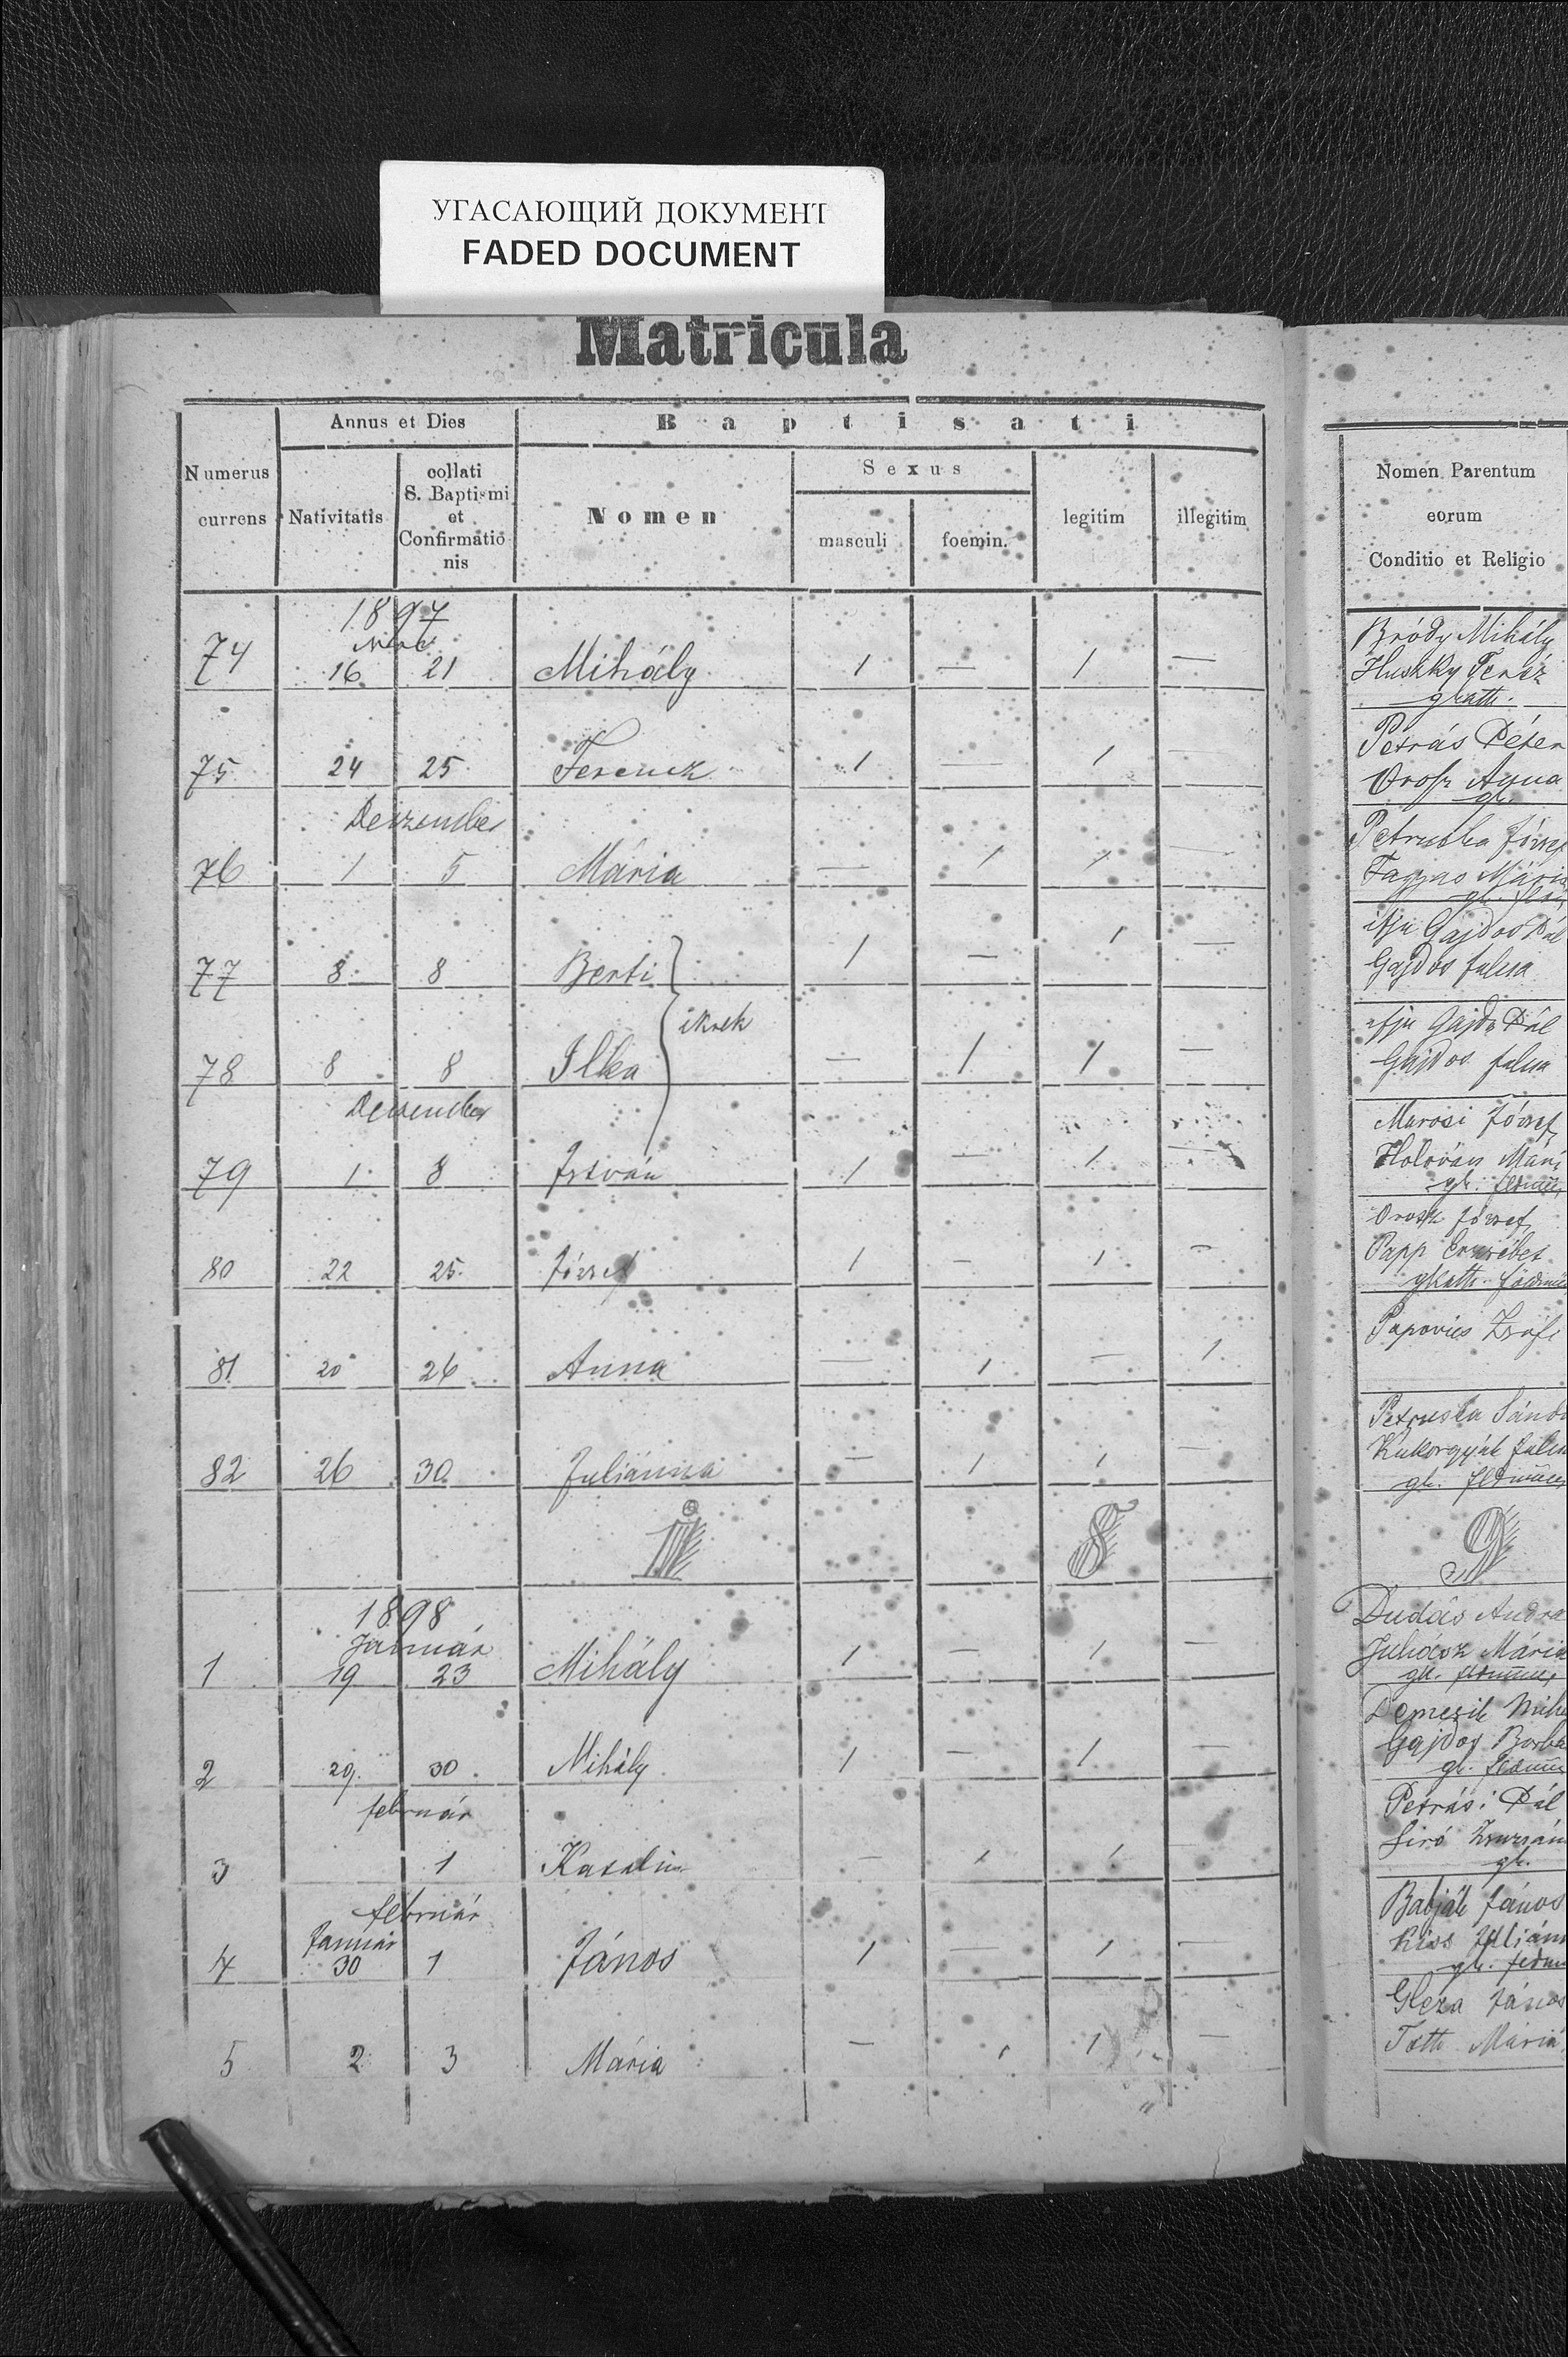 УГАСАЮЩИЙ ДОКУМЕНТ
FADED DOCUMENT
Matricula
Numerus currens
Annus et Dies
Nativitatis
collati S. Baptismi et Confirmatió nis
Baptisati
Nomen
Sexus
masculi
foemin.
legitim
illegitim
Nomen Parentum
eorum
Conditio et Religio
1897
74 16 21 Mihály 1 — 1 —
Bródy Mihály
Huszky Teréz
gkath.
75 24 25 Ferencz 1 — 1 —
Petrás Péter
Orosz Anna
gk.
Deczember
76 1 5 Mária — 1 1 —
Petruska József
Mária
77 8 8 Berti 1 — 1 —
ifju Gajdos Pál
Gajdos Julcsa
ikrek
78 8 8 Ilka — 1 1 —
ifju Gajdos Pál
Gajdos Julcsa
Deczember
79 1 8 István 1 — 1 —
Marosi József
Holován Mári
gk.
80 22 25 József 1 — 1 —
Orosz József
Papp Erzsébet
gkath.
81 20 26 Anna — 1 — 1
Papovics Zsófi
82 26 30 Juliánna — 1 1 —
Petruska Sándo
gk.
8 9
1898
Január
1 19 23 Mihály 1 — 1 —
Dudás Andra
Juhász Mária
gk.
2 29 30 Mihály 1 — 1 —
Gajdos Borbá
gk.
február
3 1 Katalin — 1 1 —
Petrási Pál
Siró Zsuzsán
gk.
február
Január
4 30 1 János 1 — 1 —
Babják János
Kiss Juliánn
gk.
5 2 3 Mária — 1 1 —
Gleza János
Toth Mária